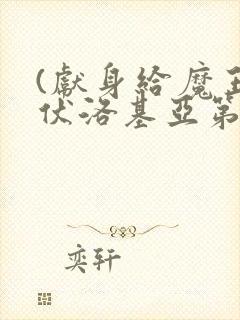 (獻身給魔王
伏洛基亞第
奕轩